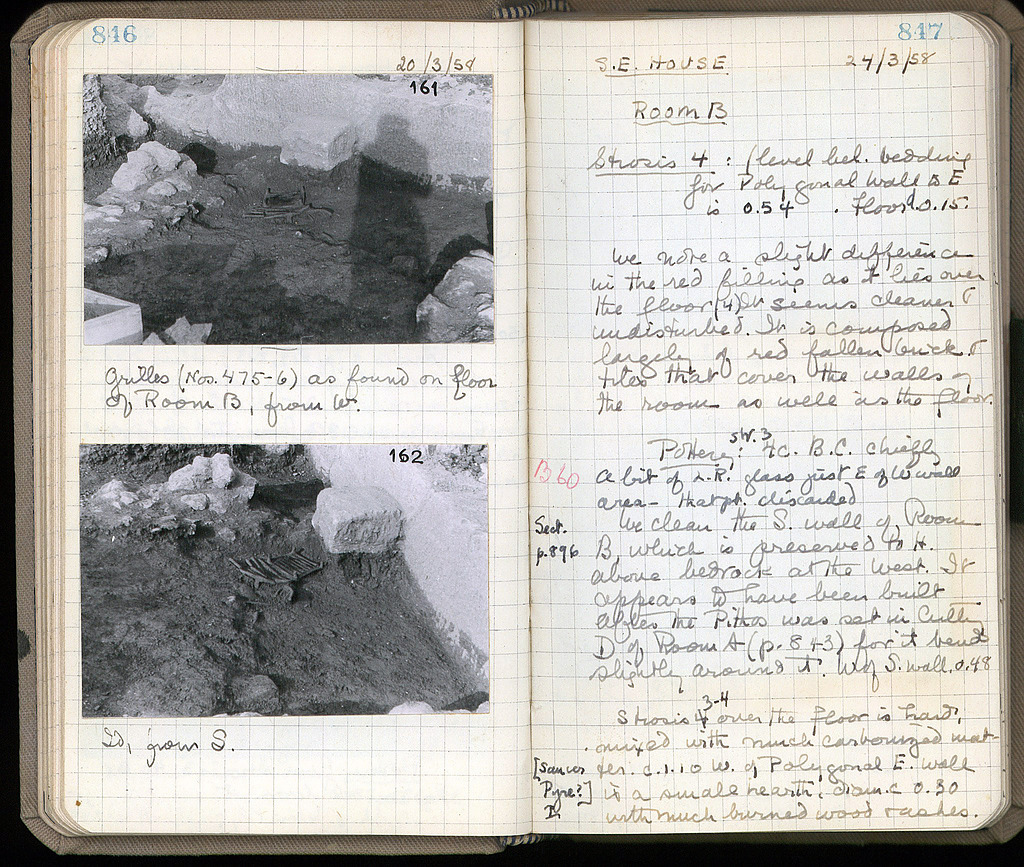 846
20/3/58
161
Grilles (Nos. 475-6) as found on floor
of Room B, from W.
162
Id, from S.
847
S.E. HOUSE 24/3/58
Room B
Strosis 4 : (level bel. bedding
for Polygonal Wall E
is 0.54 . Floor 0.15.
We note a slight difference
in the red filling as it lies over
the floor (4) It seems cleaner &
undisturbed. It is composed
largely of red fallen brick &
tiles that cover the walls of
the room as well as the floor.
Pottery: Str. 3 4c. B.C. chiefly
B60 a bit of L.R. glass just E of W wall
area - that pt. discarded
Sect. p.896
We clean the S. wall of Room
B, which is preserved to H.
above bedrock at the West. It
appears to have been built
after the Pithos was set in Cutting
D of Room A (p. 843) for it bends
slightly around it. W of S. wall, 0.48
3-4
Strosis 4 over the floor is hard,
mixed with much carbonized mat-
ter. c. 1.10 W. of Polygonal E. wall
[Saucer Pyre?]
is a small hearth, diam. c 0.30
with much burned wood & ashes.